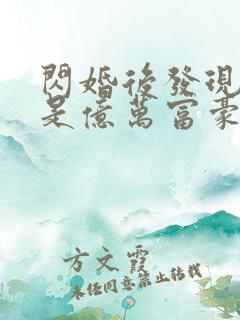 閃婚後發現
是億萬富豪
方文霞
未任同意禁止转载